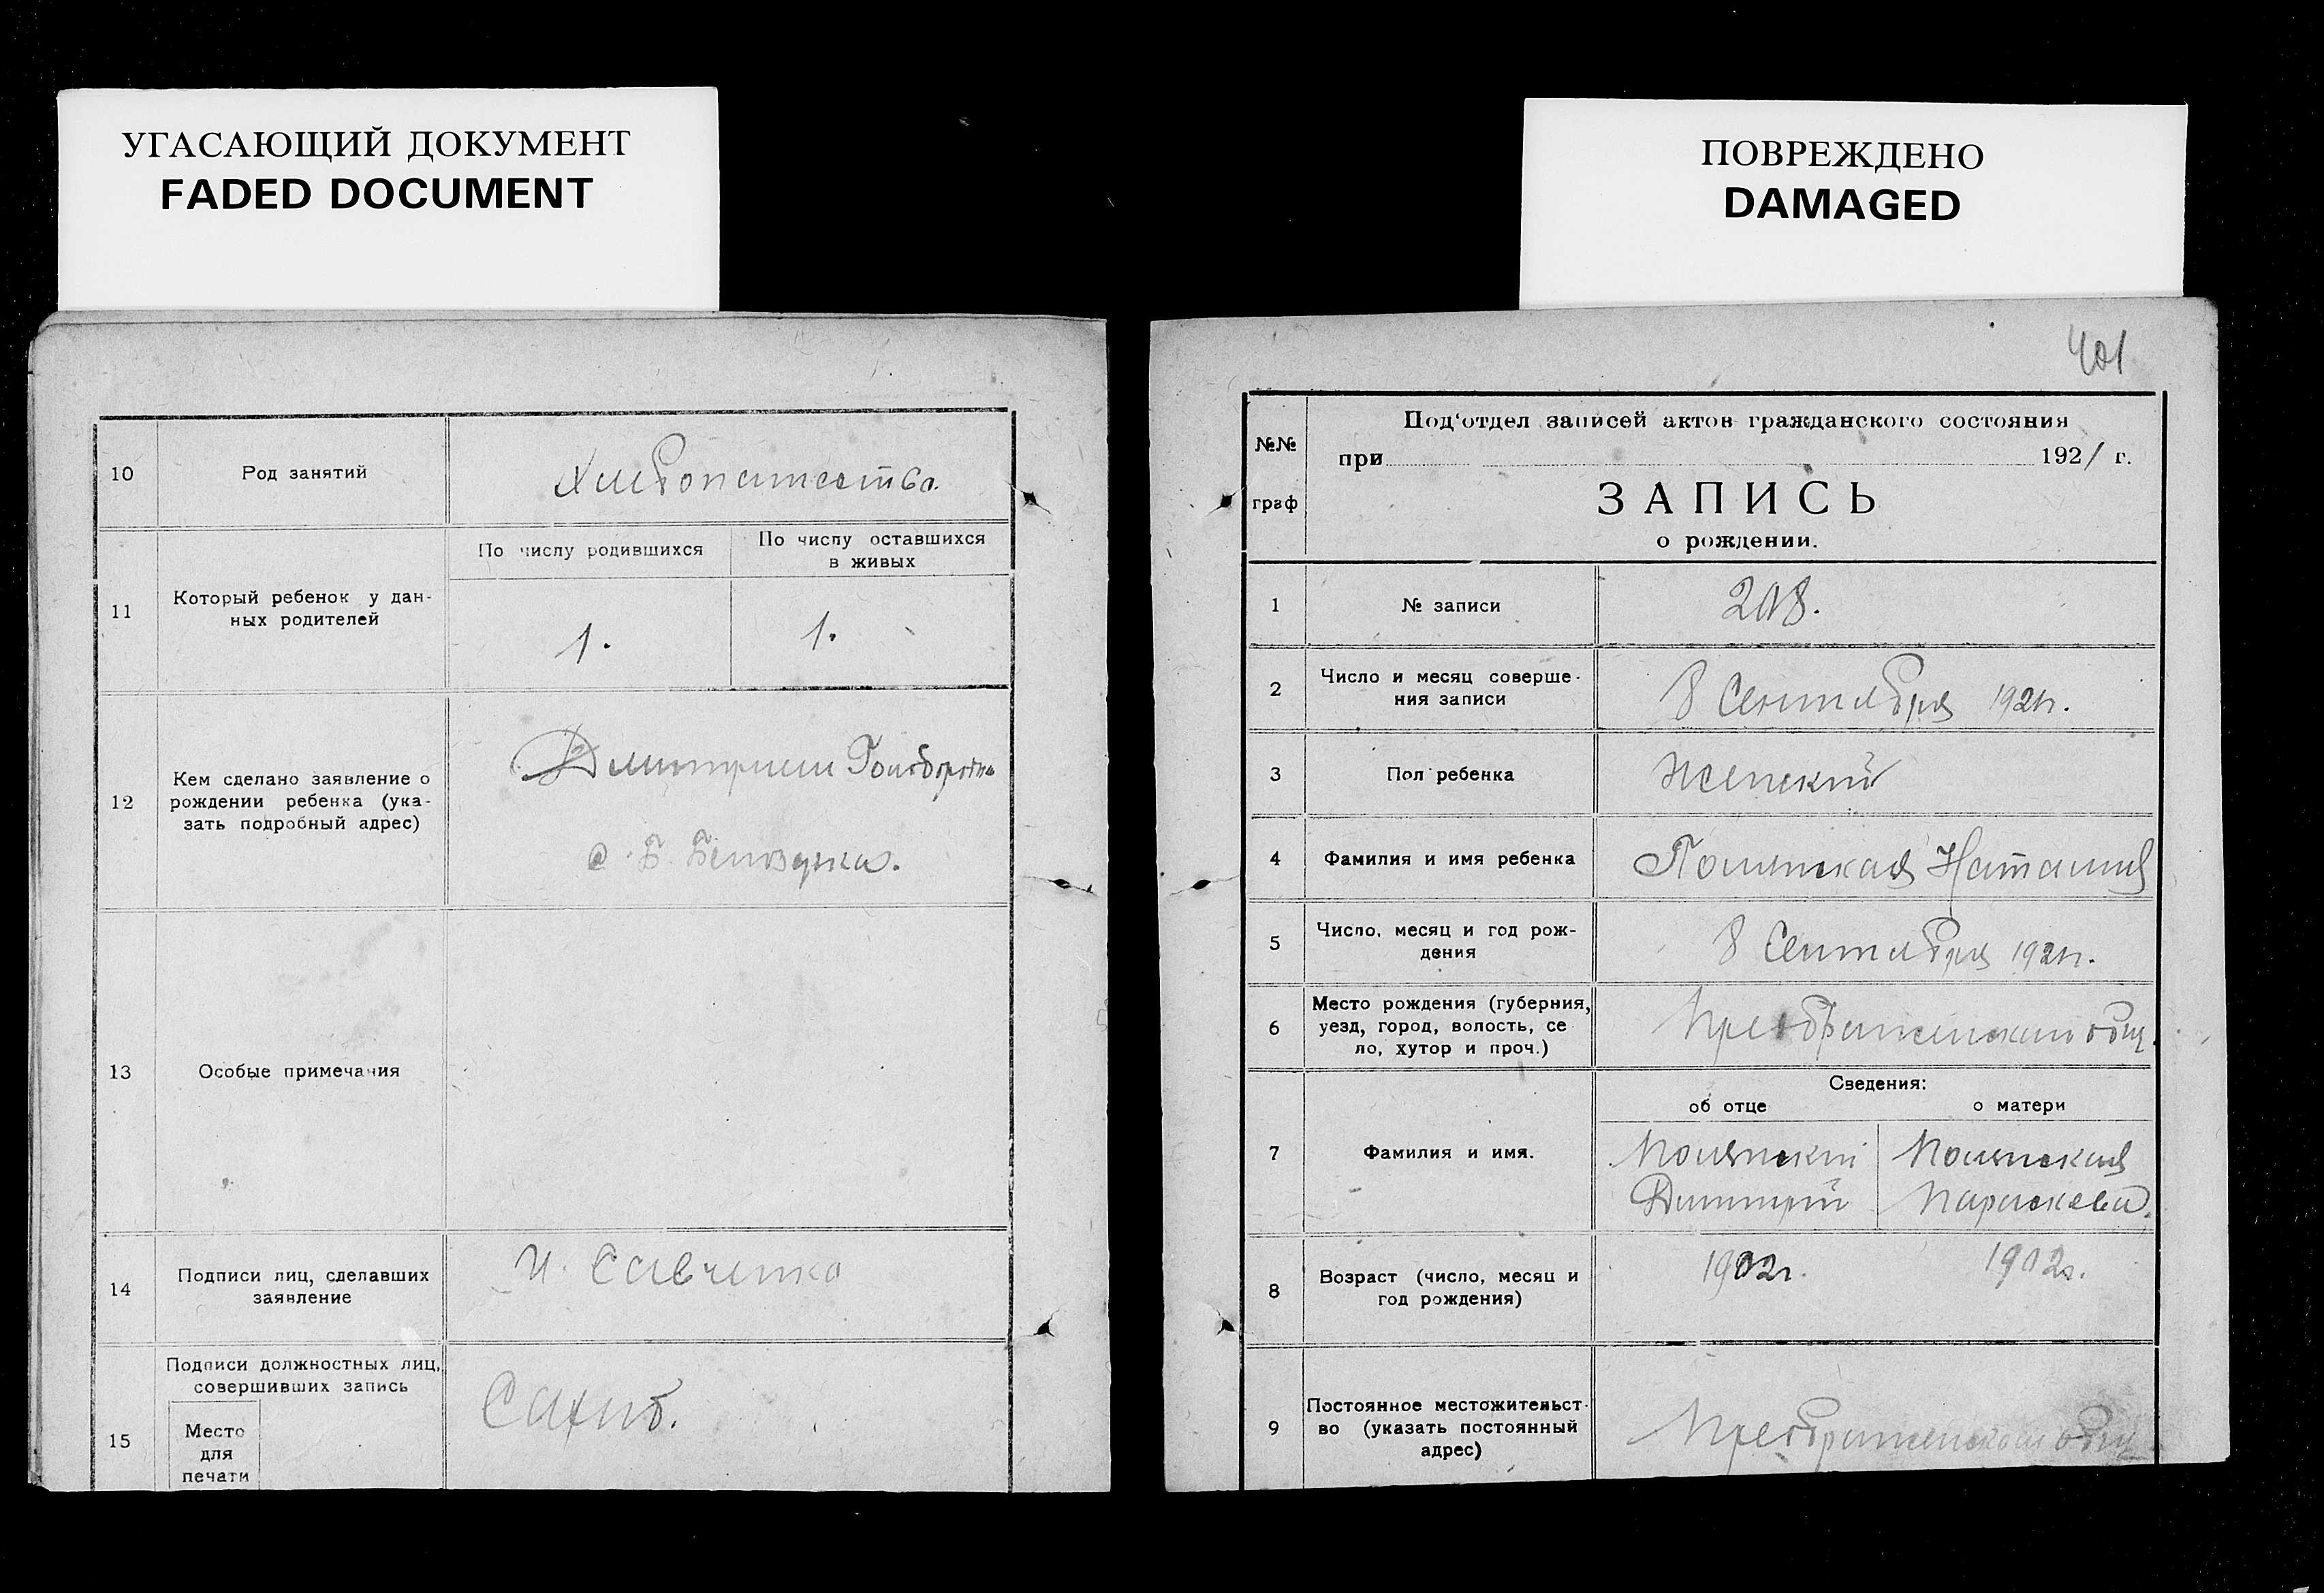 УГАСАЮЩИЙ ДОКУМЕНТ
FADED DOCUMENT
10
Род занятий
Хлебопашество.
11
Который ребенок у дан-
ных родителей
По числу родившихся
По числу оставшихся
в живых
1.
1.
12
Кем сделано заявление о
рождении ребенка (ука-
зать подробный адрес)
с. Б. Белозерка.
13
Особые примечания
14
Подписи лиц, сделавших
заявление
И. Савченко
15
Подписи должностных лиц,
совершивших запись
Место
для
печати
ПОВРЕЖДЕНО
DAMAGED
401
№№
граф
Под‘отдел записей актов гражданского состояния
при 1921 г.
ЗАПИСЬ
о рождении.
1
№ записи
2
Число и месяц соверше-
ния записи
8 Сентября 1921г.
3
Пол ребенка
Женский
4
Фамилия и имя ребенка
Полянская Наталия
5
Число, месяц и год рож-
дения
8 Сентября 1921г.
6
Место рождения (губерния,
уезд, город, волость, се
ло, хутор и проч.)
общ.
Сведения:
об отце
о матери
7
Фамилия и имя.
Полянский
Димитрий
Полянская
Параскева.
8
Возраст (число, месяц и
год рождения)
1902г.
1902г.
9
Постоянное местожительст-
во (указать постоянный
адрес)